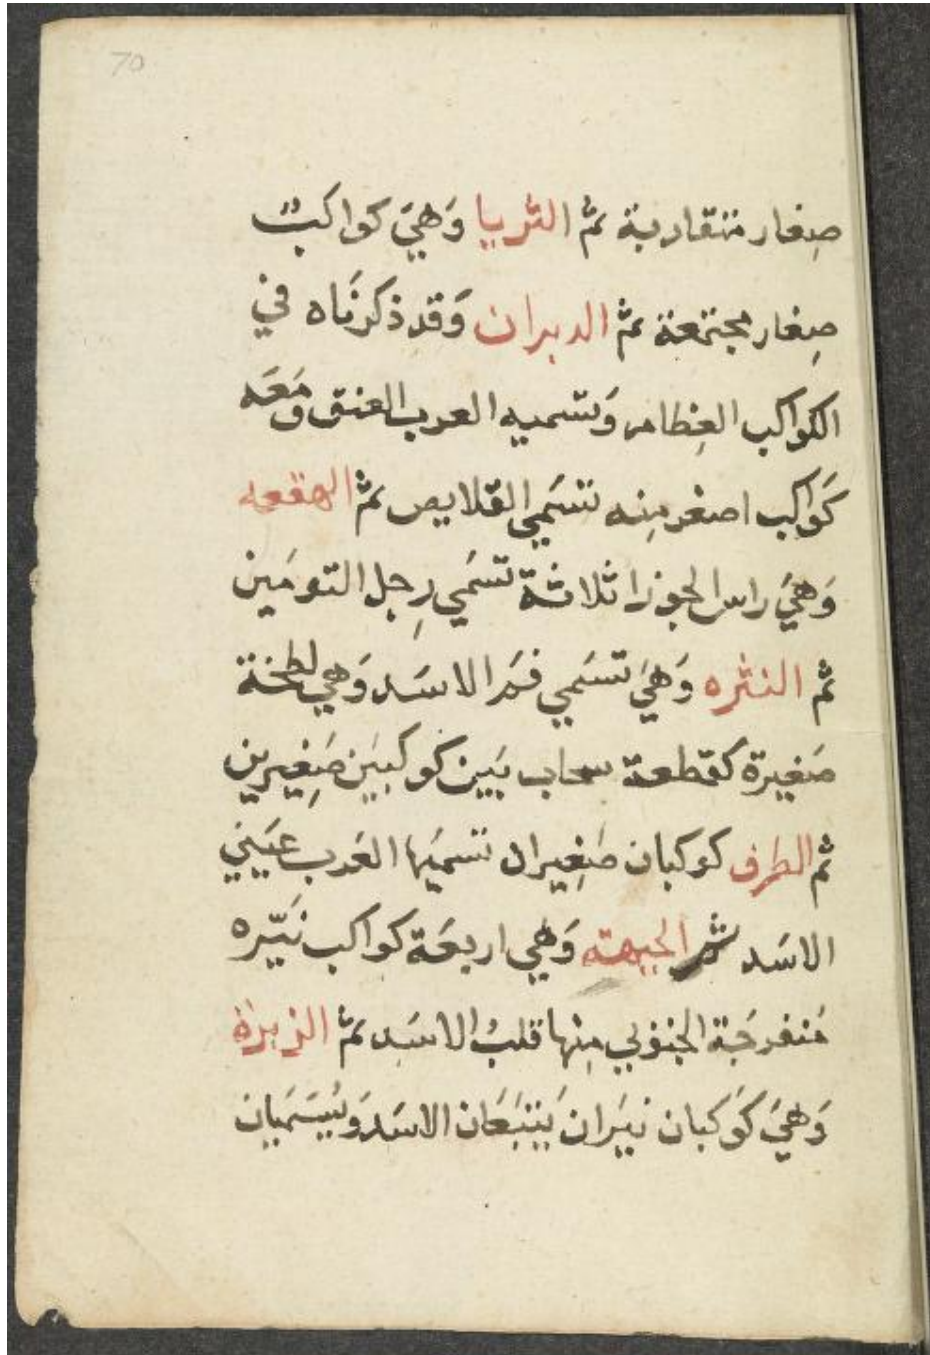 70
صِغار متقاربة ثمّ الثريا وَهيَ كواكبٌ
صِغار مجتمعة ثمّ الدبران وَقد ذكرنَاه في
الكواكب العِظام وَتسميه العرب العنق وَمَعَه
كَواكِب اصغر مِنه تسَمي القلايص ثمّ الهقعه
وَهيَ راس الجوزا ثلاثة تسَمي رِجل التومَين
ثمّ النثره وَهيَ تسَمي فمَ الاسَد وَهي لطخة
صَغيرة كقطعة سحاب بَين كوكبَين صَغِيرين
ثمّ الطرف كوكبان صَغِيران تسميَها العَرب عَينَي
الاسَد ثم الجبهته وَهي اربعَة كواكب نَيّره
مَنفرجَة الجنوبي مِنها قلبُ الاسَدِ ثمّ الزبرَة
وَهيَ كَوكبان نيَران يَتبَعَان الاسَد وَيُسَمَيان